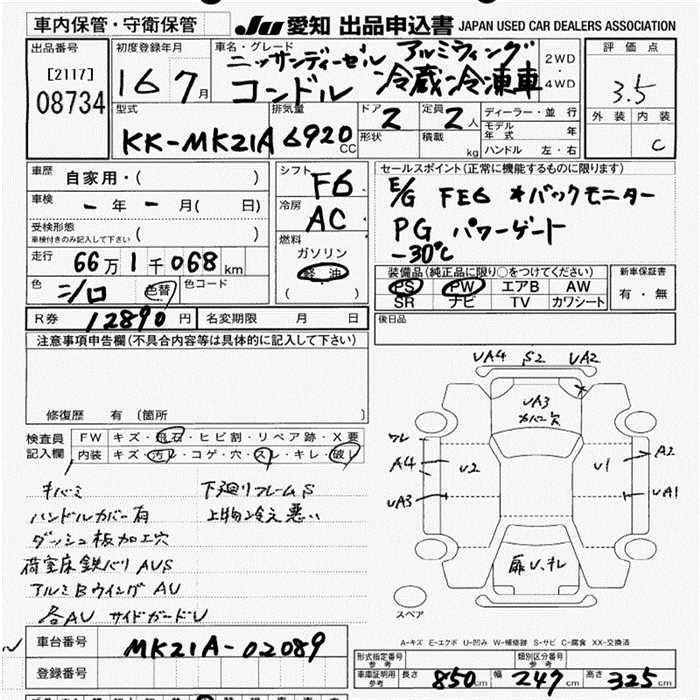 車内保管・守衛保管
JU 愛知 出品申込書 JAPAN USED CAR DEALERS ASSOCIATION
出品番号 初度登録年月 車名・グレード 評価点
[2117]
08734
16 7月
ニッサンディーゼル アルミウィング
コンドル 冷蔵冷凍車
2WD
・
4WD
3.5
外装 内装
C
型式 排気量 ドア 定員 ディーラー・並行
KK-MK21A 6920CC 2 2人
モデル年式 年
形状 積載 kg ハンドル 左・右
車歴 自家用・( )
シフト F6
セールスポイント(正常に機能するものに限ります)
車検 ー年ー月( 日)
冷房 AC
E/G FE6 *バックモニター
受検形態
車検付きのみ記入して下さい ( )
PG パワーゲート
-30℃
走行 66万1千068km
燃料
ガソリン
軽油
( )
装備品(純正品に限り○をつけてください) 新車保証書
色 シロ 色替 色コード
PS PW エアB AW
SR ナビ TV カワシート
有・無
R券 12890円 名変期限 月 日
後日品
注意事項申告欄(不具合内容等は具体的に記入して下さい)
修復歴 有 〔箇所 〕
検査員
記入欄
FW キズ・飛石・ヒビ割・リペア跡・X要
内装 キズ・汚レ・コゲ・穴・スレ・キレ・破レ
キバミ 下廻りフレームS
ハンドルカバー有 上物冷え悪い
ダッシュ板加工穴
荷室床鉄バリ AUS
アルミBウイング AU
各AU サイドガードU
UA4 S2 UA2
UA3
カバー欠
ワレ
A4
UA3
U2
U1
A2
UA1
扉U、キレ
スペア
A-キズ E-エクボ U-凹み W-補修跡 S-サビ C-腐食 XX-交換済
車台番号 MK21A-02089
登録番号
形式指定番号
参考
類別区分番号
参考
車庫証明用
参考
長さ 850cm 幅 247cm 高さ 325cm